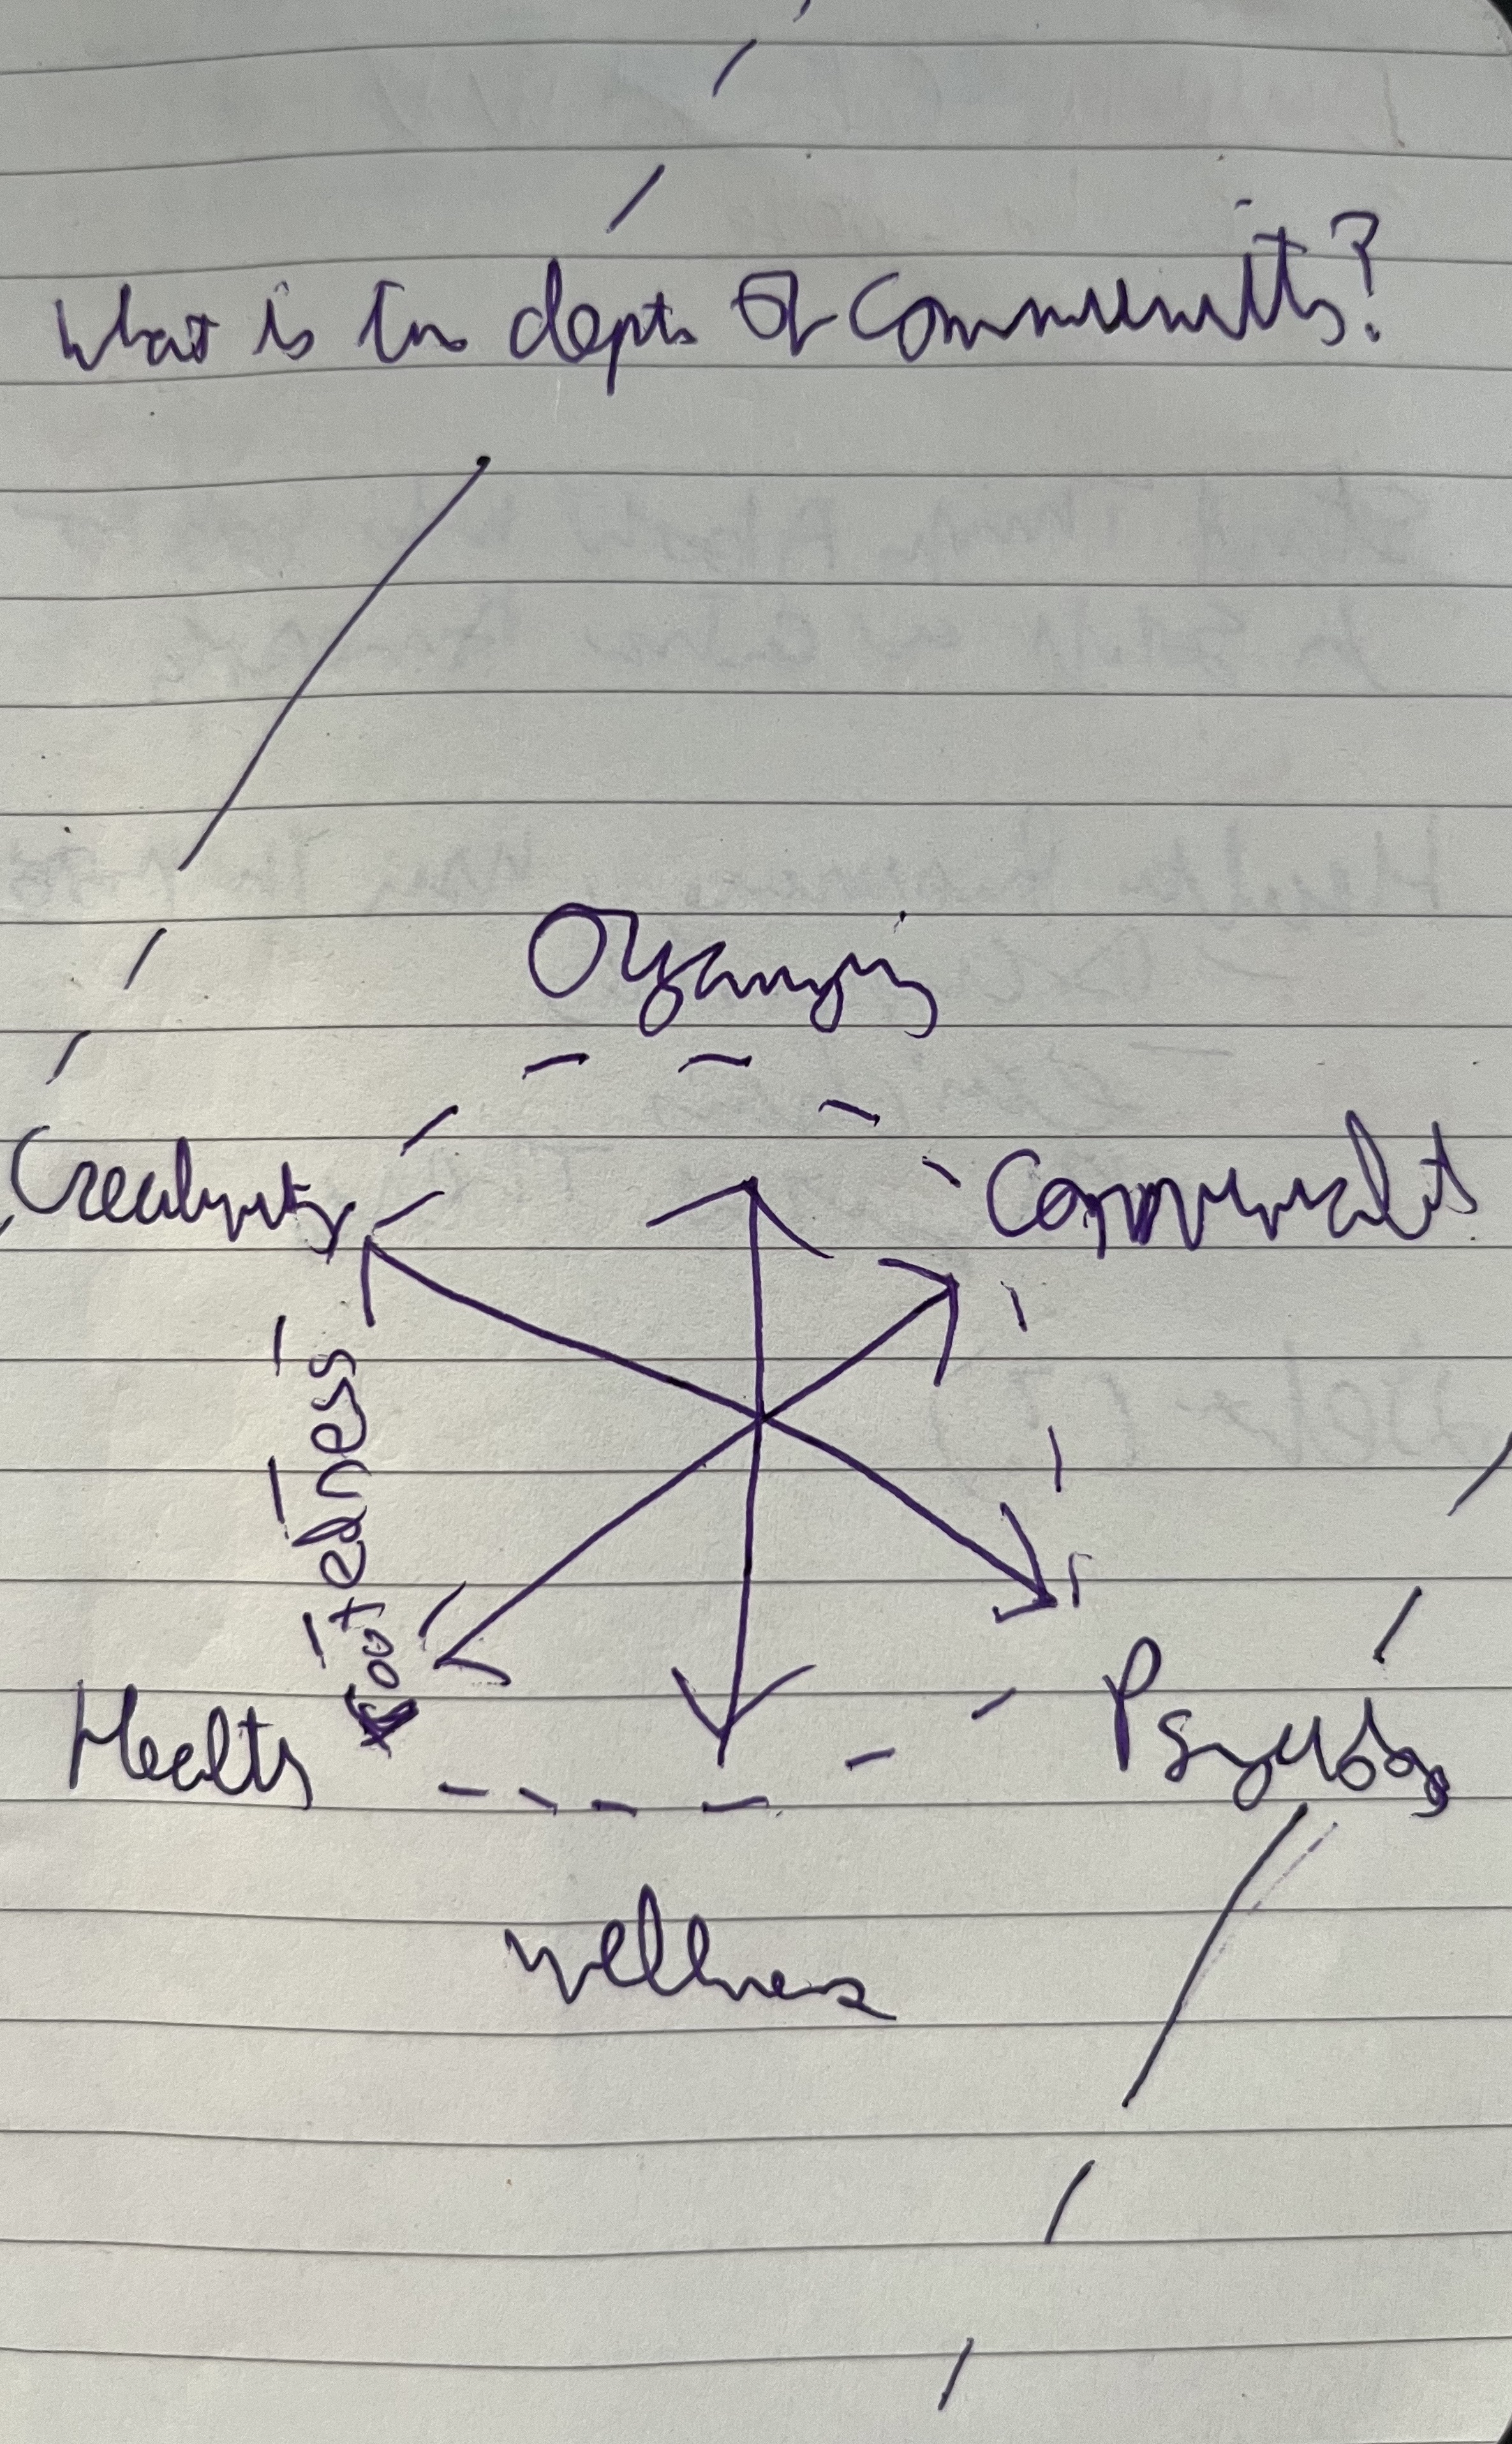 What is the depth of Community?
Organizing
Creativity
Community
rootedness
Health
Psychology
wellness